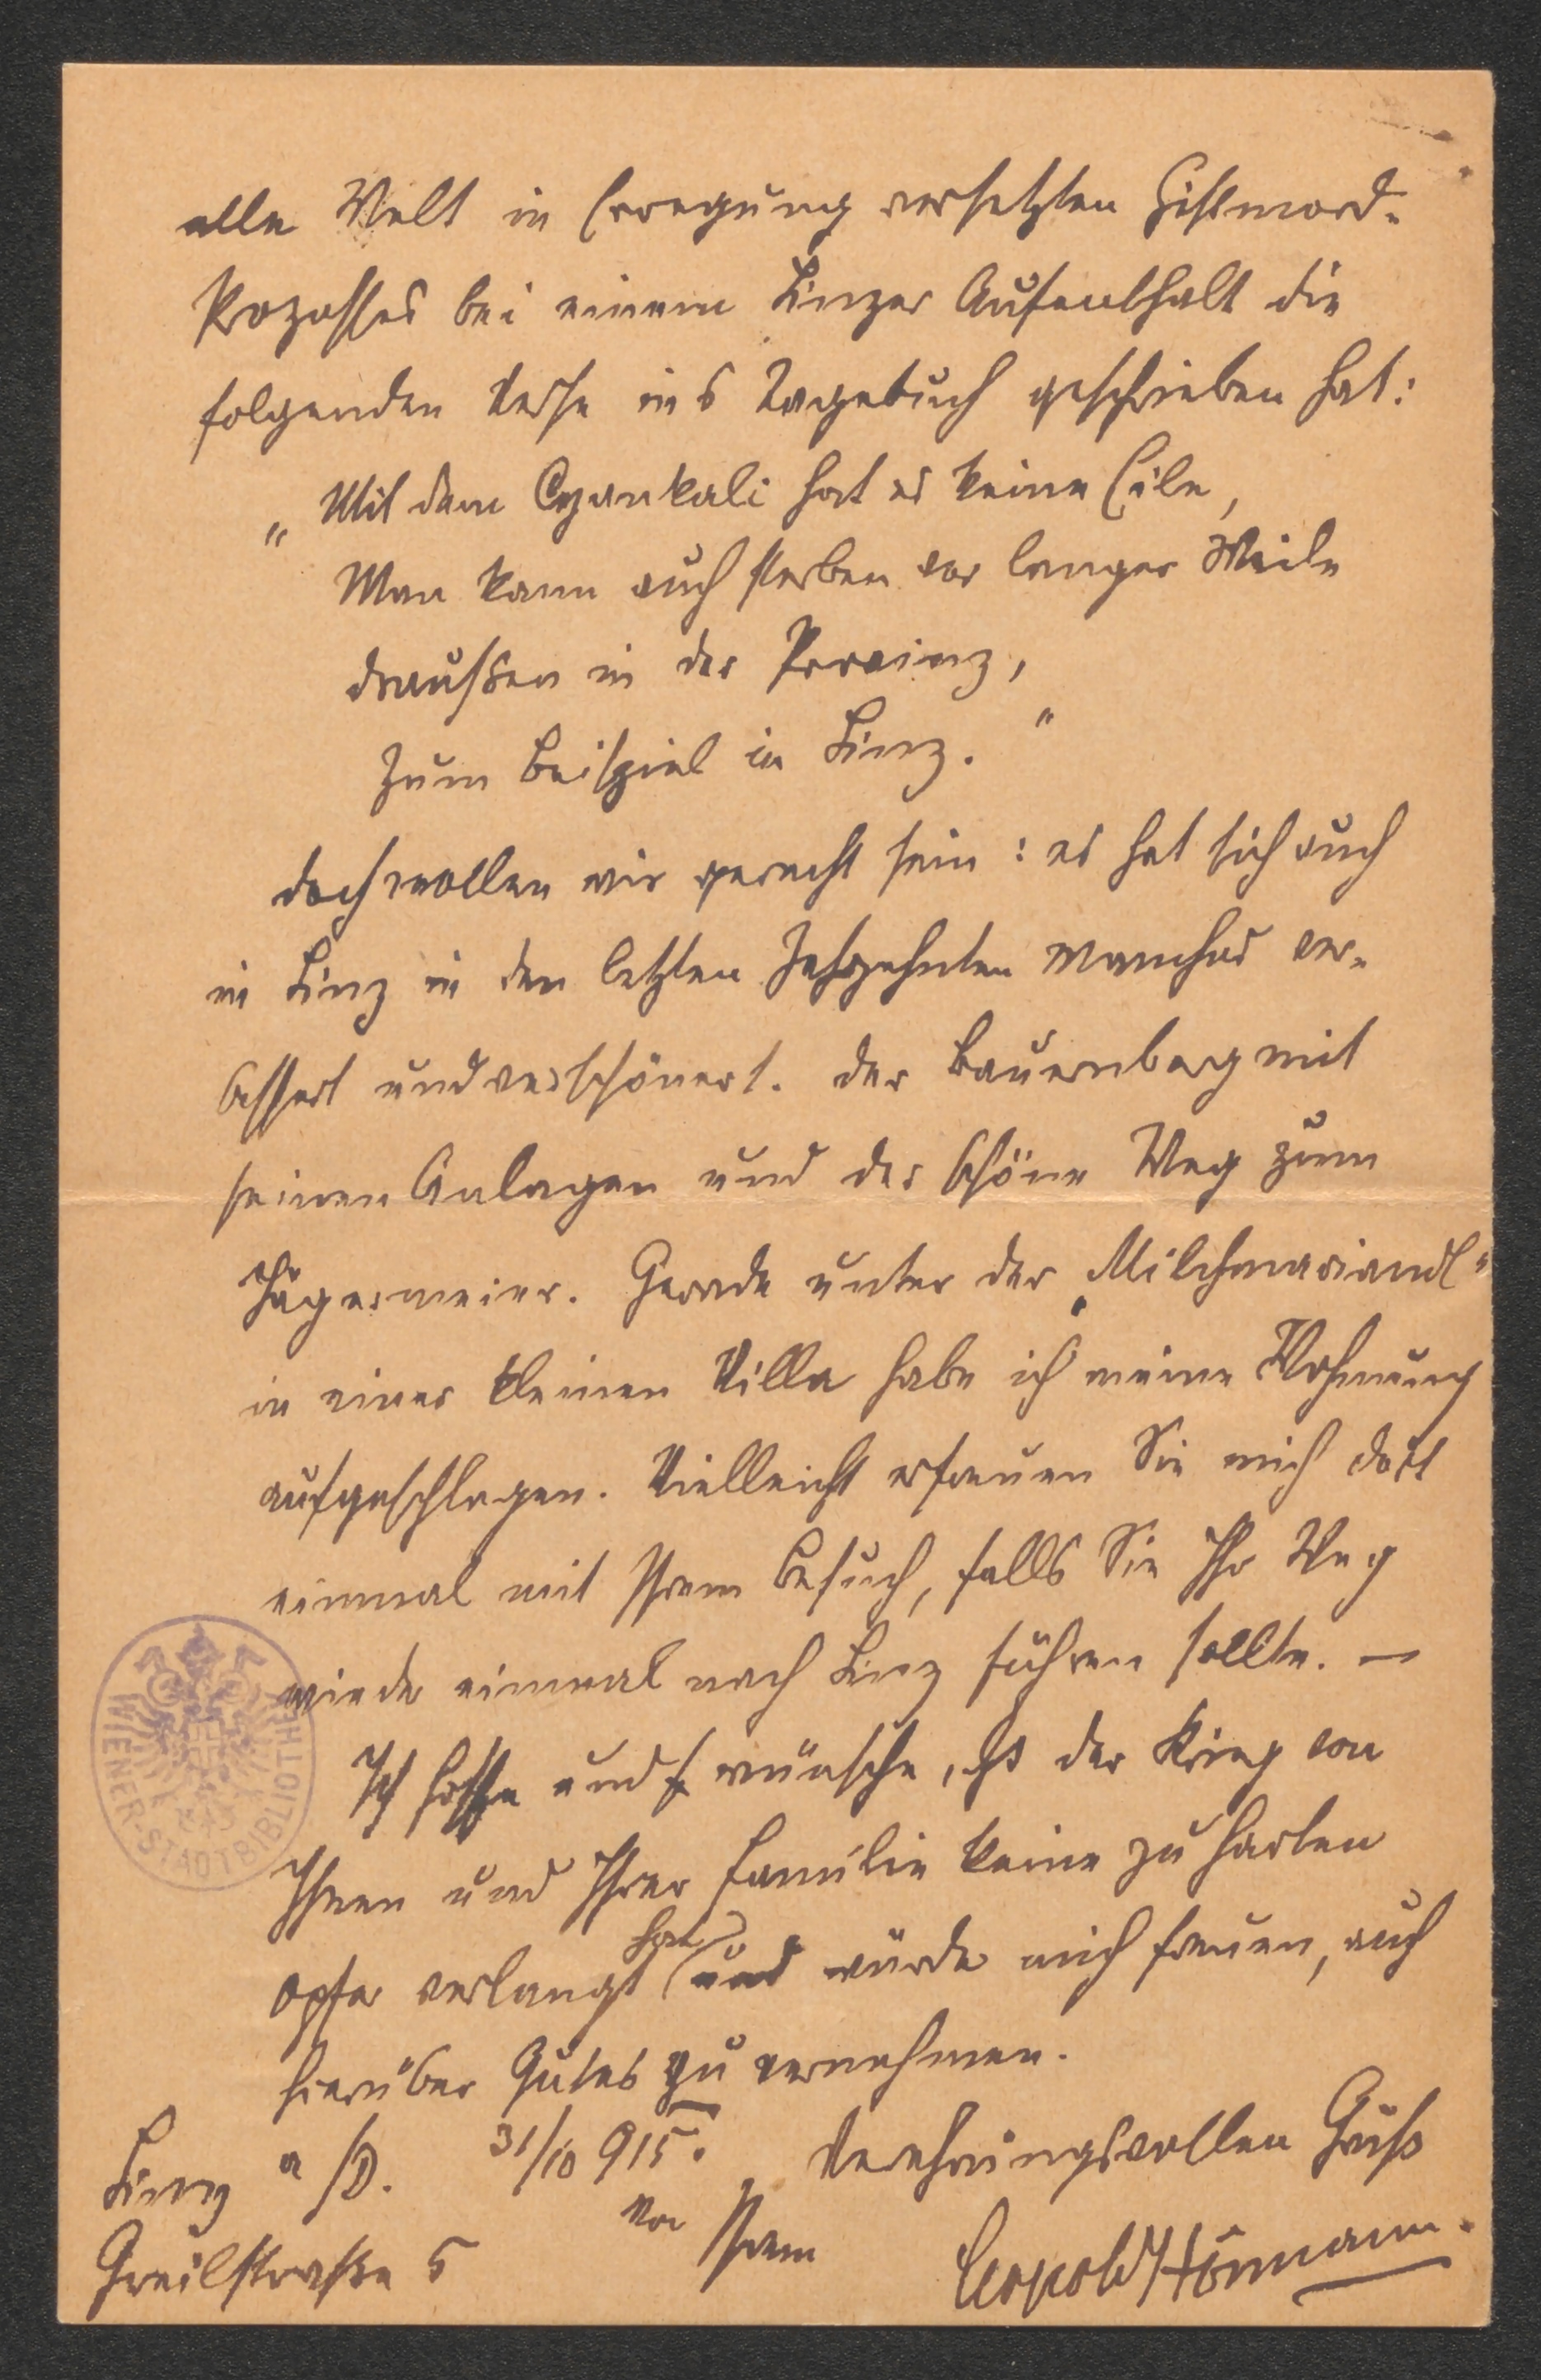 alle Welt in Erregung versetzten Giftmord-
Prozesses bei einem Linzer Aufenthalt die
folgenden Verse ins Tagebuch geschrieben hat:
„Mit dem Cyankali hat es keine Eile,
Man kann auch sterben vor langer Weile
draußen in der Provinz,
zum Beispiel in Linz."
doch wollen wir gerecht sein: es hat sich auch
in Linz in den letzten Jahrzehnten manches ver-
bessert und verschönert. der Bauernberg mit
seinen Anlagen und der schöne Weg zum
Jägermeier. Gerade unter der „Milchmariandl"
in einer kleinen Villa habe ich meine Wohnung
aufgeschlagen. Vielleicht erfreuen Sie mich dort
einmal mit Ihrem Besuch, falls Sie Ihr Weg
wieder einmal nach Linz führen sollte. —
Ich hoffe und wünsche, daß der Krieg von
Ihnen und Ihrer Familie keine zu harten
Opfer verlangt hat und würde mich freuen, auch
hierüber Gutes zu vernehmen.
Linz a/D. 31/10 915. Verehrungsvollen Gruß
Greilstraße 5 von Ihrem Leopold Hörmann.
WIENER-STADTBIBLIOTHEK